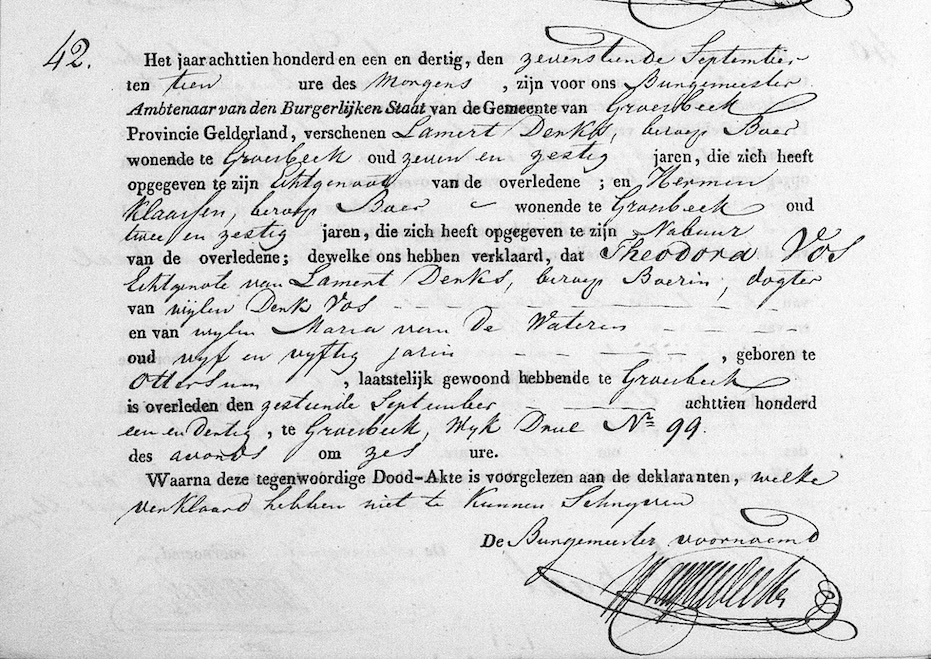 42.
Het jaar achttien honderd en een en dertig, den zevenstiende September
ten tien ure des Morgens, zijn voor ons Burgemeister
Ambtenaar van den Burgerlijken Staat van de Gemeente van Groesbeek
Provincie Gelderland, verschenen Lamert Derks, beroep Boer
wonende te Groesbeek oud zeven en zestig jaren, die zich heeft
opgegeven te zijn Echtgenoot van de overledene ; en Hermen
Klaassen, beroep Boer wonende te Groesbeek oud
twee en zestig jaren, die zich heeft opgegeven te zijn Nabuur
van de overledene; dewelke ons hebben verklaard, dat Theodora Vos
Echtgenote van Lamert Derks, beroep Boerin, dogter
van wijlen Derk Vos
en van wylen Maria van de Wateren
oud vyf en vyftig jaren, geboren te
Ottersum, laatstelijk gewoond hebbende te Groesbeek
is overleden den zestiende September achttien honderd
een en dertig, te Groesbeek, Wyk Drie Nr 99.
des avonds om zes ure.
Waarna deze tegenwoordige Dood-Akte is voorgelezen aan de deklaranten, welke
verklaard hebben niet te kunnen Schryven
De Burgemeister voornoemd